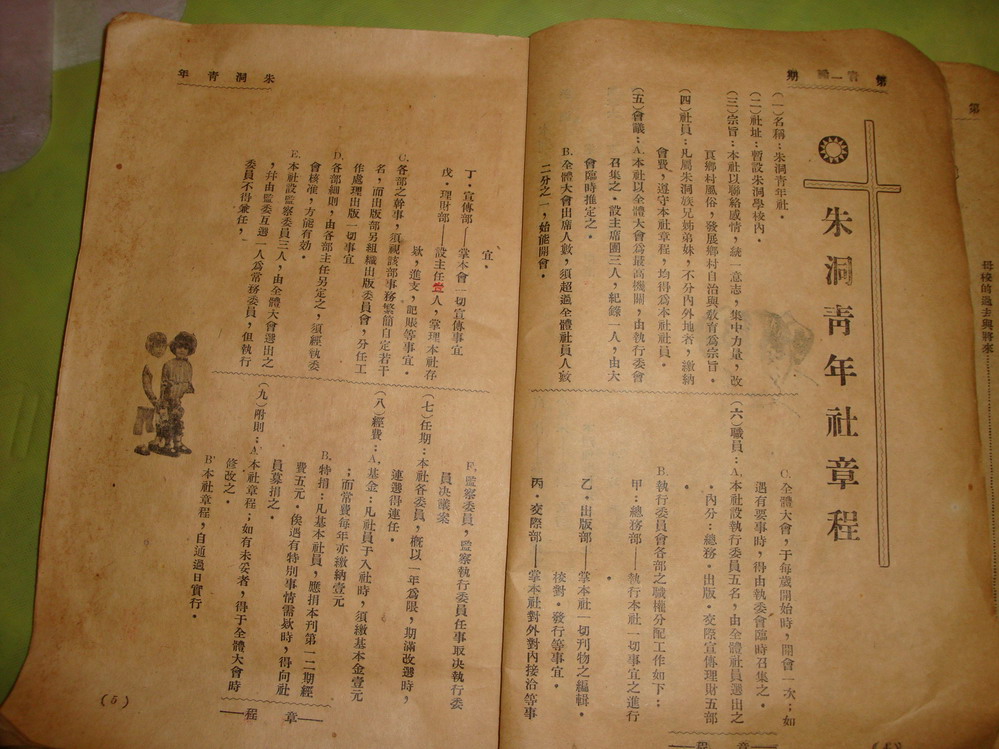 第一期
朱洞青年社章程
(一)名稱:朱洞青年社.
(二)社址:暫設朱洞學校內.
(三)宗旨:本社以聯絡感情,統一意志,集中力量,改
良鄉村風俗,發展鄉村自治與敎育爲宗旨.
(四)社員:凡屬朱洞族兄姊弟妹,不分內外地者,繳納
會費,遵守本社章程,均得爲本社社員.
(五)會議:A.本社以全體大會爲最高機關,由執行委會
召集之.設主席團三人,紀錄一人,由大
會臨時推定之.
B.全體大會出席人數,須超過全體社員人數
二分之一,始能開會.
C.全體大會,于每歲開始時,開會一次;如
遇有要事時,得由執委會臨時召集之.
(六)職員:A.本社設執行委員五名,由全體社員選出之
.內分:總務.出版.交際宣傳理財五部
.
B.執行委員會各部之職權分配工作如下:
甲:總務部——執行本社一切事宜之進行
.
乙.出版部——掌本社一切刊物之編輯.
校對.發行等事宜.
丙.交際部——掌本社對外對內接洽等事
章程
朱洞青年
宜.
丁.宣傳部——掌本會一切宣傳事宜
戊.理財部——設主任壹人,掌理本社存
欵,進支,記賬等事宜.
C.各部之幹事,須視該部事務繁簡自定若干
名,而出版部另組織出版委員會,分任工
作處理出版一切事宜
D.各部細則,由各部主任另定之,須經執委
會核准,方能有効.
E.本社設監察委員三人,由全體大會選出之
,幷由監委互選一人爲常務委員,但執行
委員不得兼任,
F.監察委員,監察執行委員任事取决執行委
員决議案
(七)任期:本社各委員,概以一年爲限,期滿改選時,
連選得連任.
(八)經費:A.基金:凡社員于入社時,須繳基本金壹元
;而常費每年亦繳納壹元
B.特捐:凡基本社員,應捐本刊第一二期經
費五元.俟遇有特別事情需欵時,得向社
員募捐之.
(九)附則:A.本社章程;如有未妥者,得于全體大會時
修改之.
B.本社章程,自通過日實行.
章程
(5)
第
母校的過去與將來